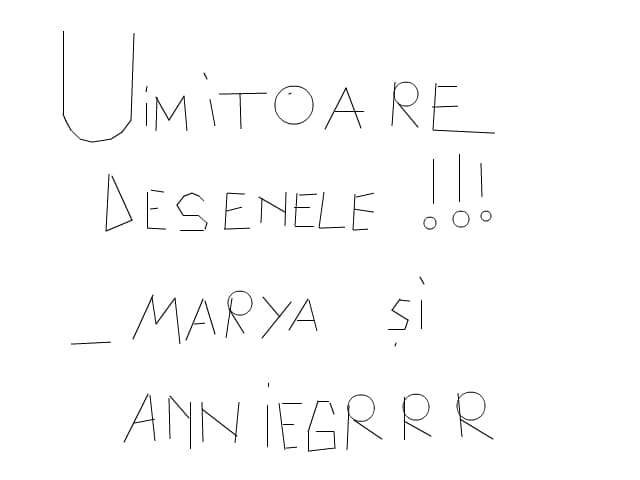 UiMiTOARE
DESENELE !!!
_ MARYA ȘI
ANNIEGRRR